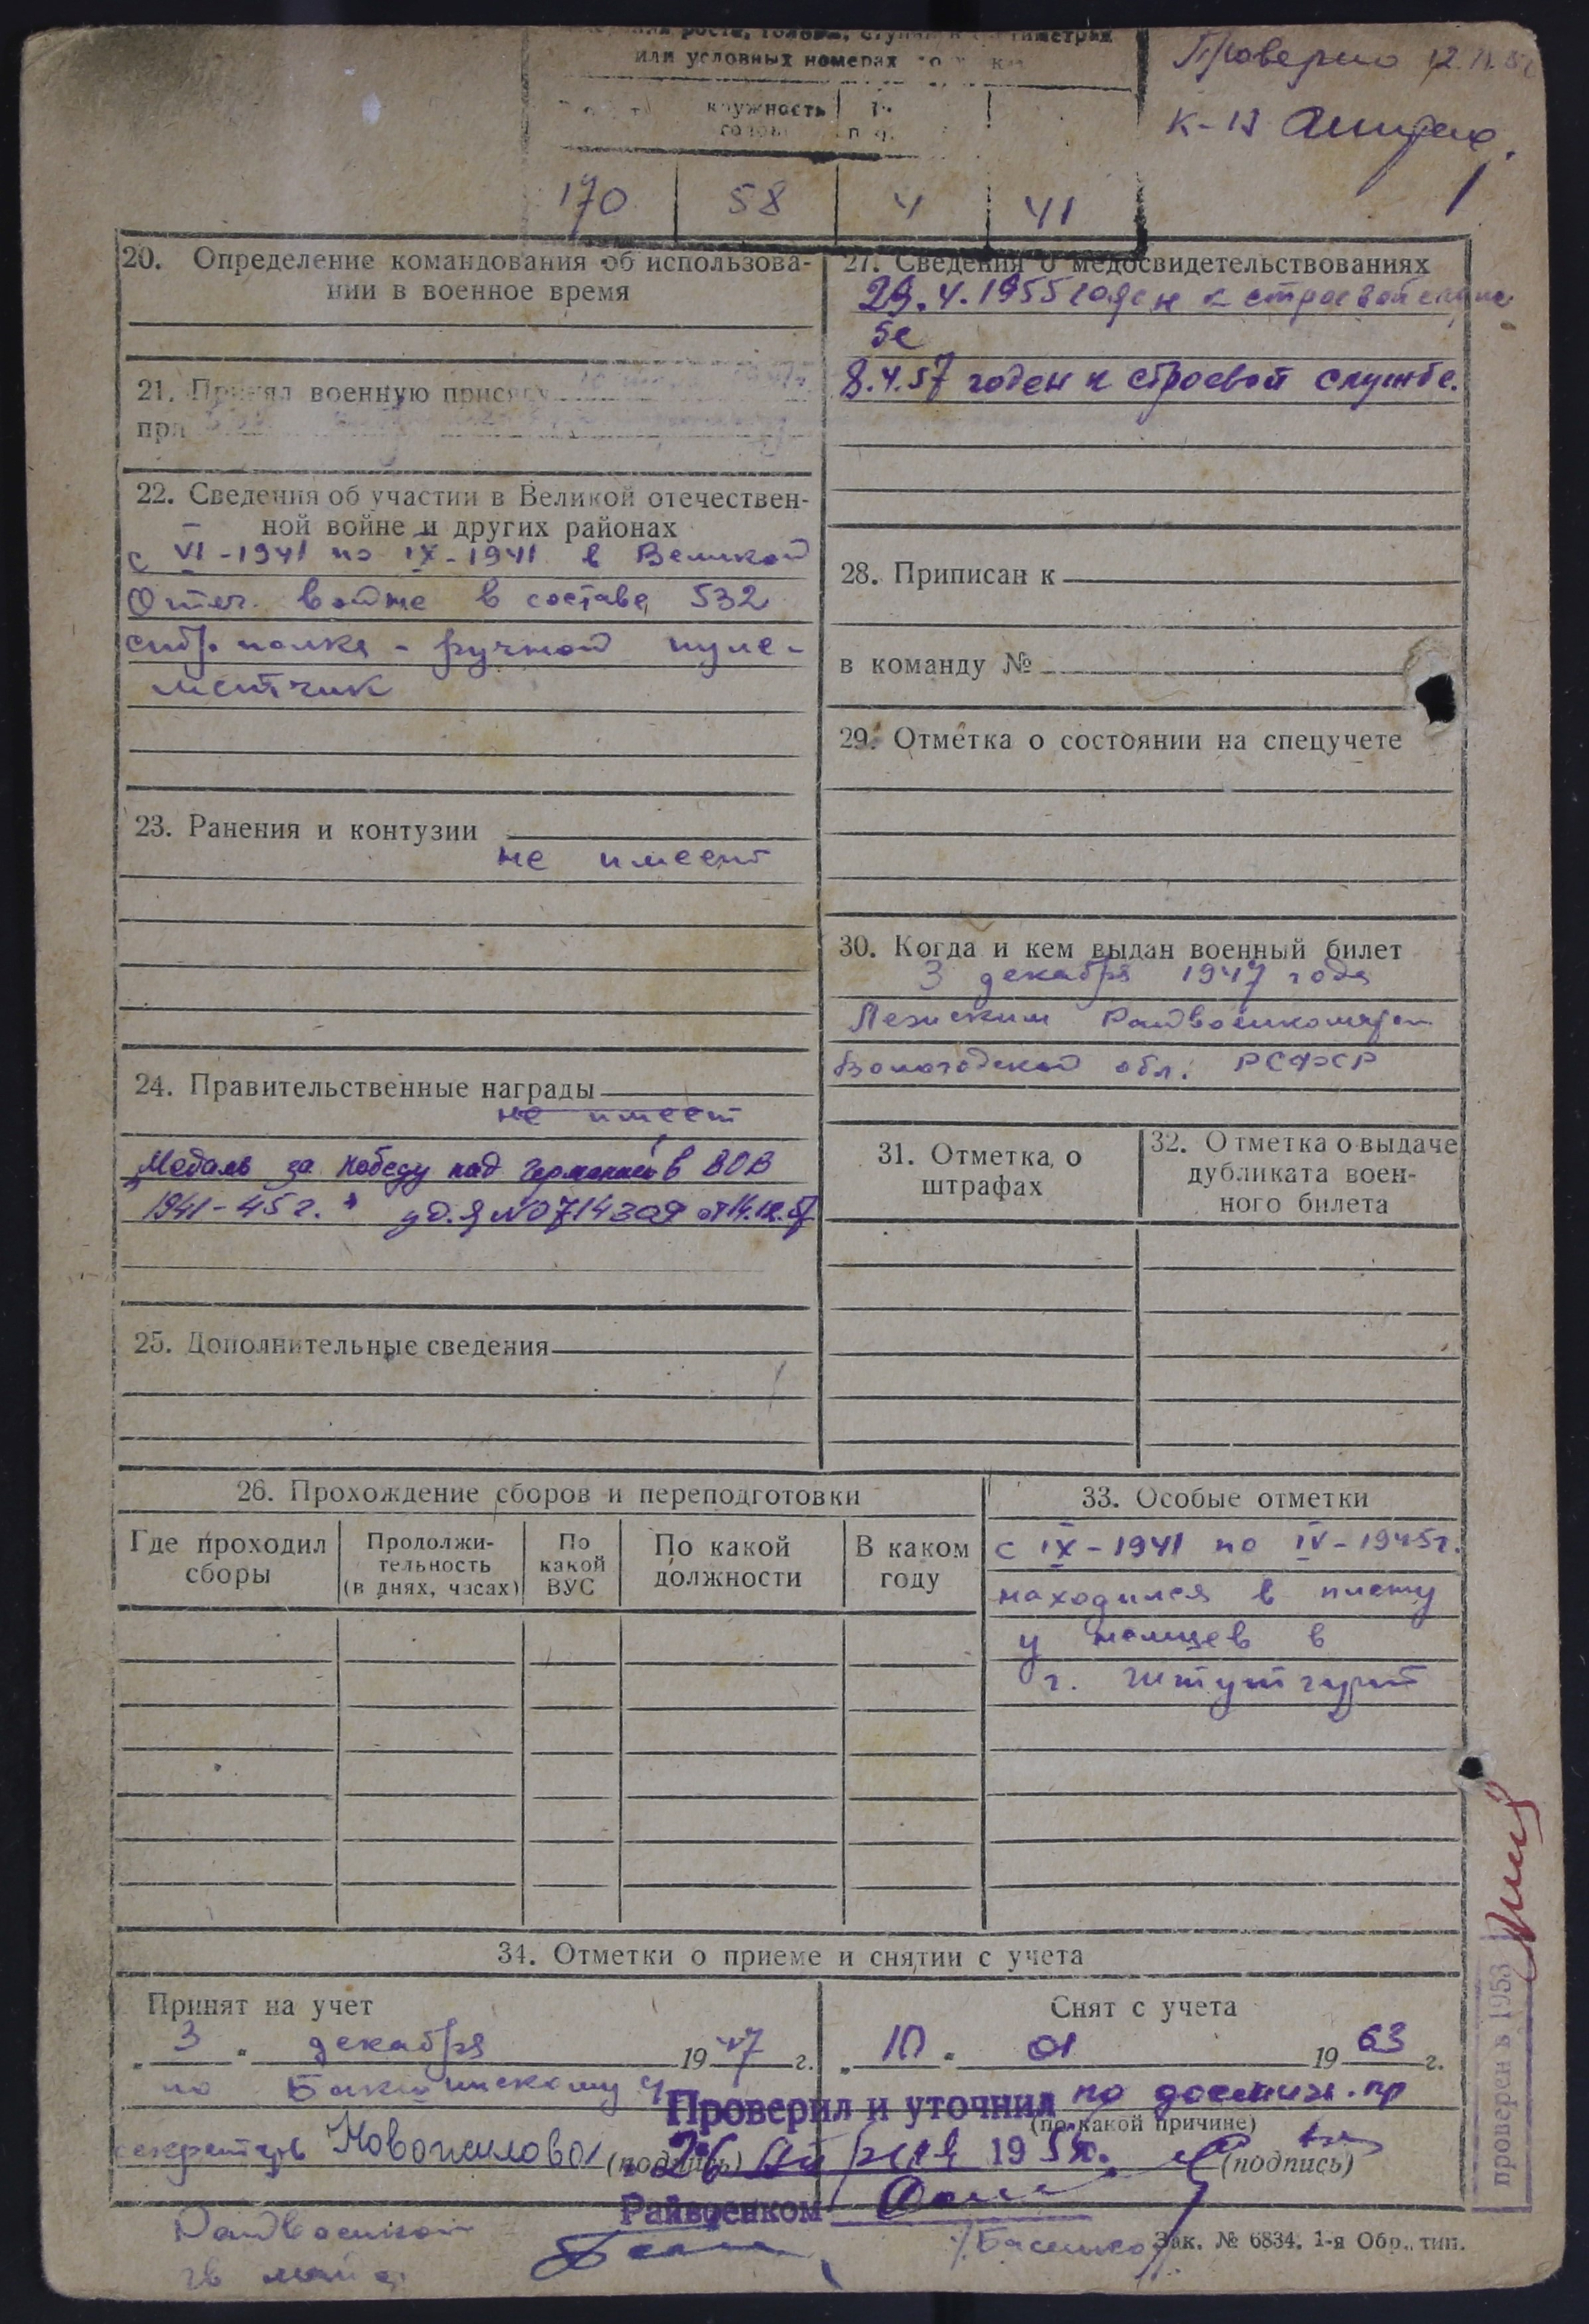 роста, головы, ступни в сантиметрах
или условных номерах
окружность
головы
Проверено 12.
к-н
170 58 4 41
20. Определение командования об использова-
нии в военное время
21. Принял военную присягу
при
22. Сведения об участии в Великой отечествен-
ной войне и других районах
с VI-1941 по IX-1941 в Великой
Отеч. войне в составе 532
стр. полка - ручной пуле-
метчик
23. Ранения и контузии
не имеет
24. Правительственные награды
не имеет
"Медаль за победу над Германией в ВОВ
1941-45 г." уд. Я №0714309 от 14.12.57
25. Дополнительные сведения
27. Сведения о медосвидетельствованиях
29.4.1955 годен к строевой служ
бе
8.4.57 годен к строевой службе.
28. Приписан к
в команду №
29. Отметка о состоянии на спецучете
30. Когда и кем выдан военный билет
3 декабря 1947 года
Лежским Райвоенкоматом
Вологодской обл. РСФСР
31. Отметка о
штрафах
32. Отметка о выдаче
дубликата воен-
ного билета
26. Прохождение сборов и переподготовки
Где проходил
сборы
Продолжи-
тельность
(в днях, часах)
По
какой
ВУС
По какой
должности
В каком
году
33. Особые отметки
с IX-1941 по IV-1945г.
находился в плену
у немцев в
г. Штутгарт
34. Отметки о приеме и снятии с учета
Принят на учет
„3" декабря 1947 г.
по
секретарь Новожилова (подпись)
Снят с учета
„10" 01 1963 г.
по достиж. пр
(по какой причине)
(подпись)
Проверил и уточнил
26 апреля 195 г.
Райвоенком
Райвоенком
майор
Зак. № 6834. 1-я Обр. тип.
проверен в 1953